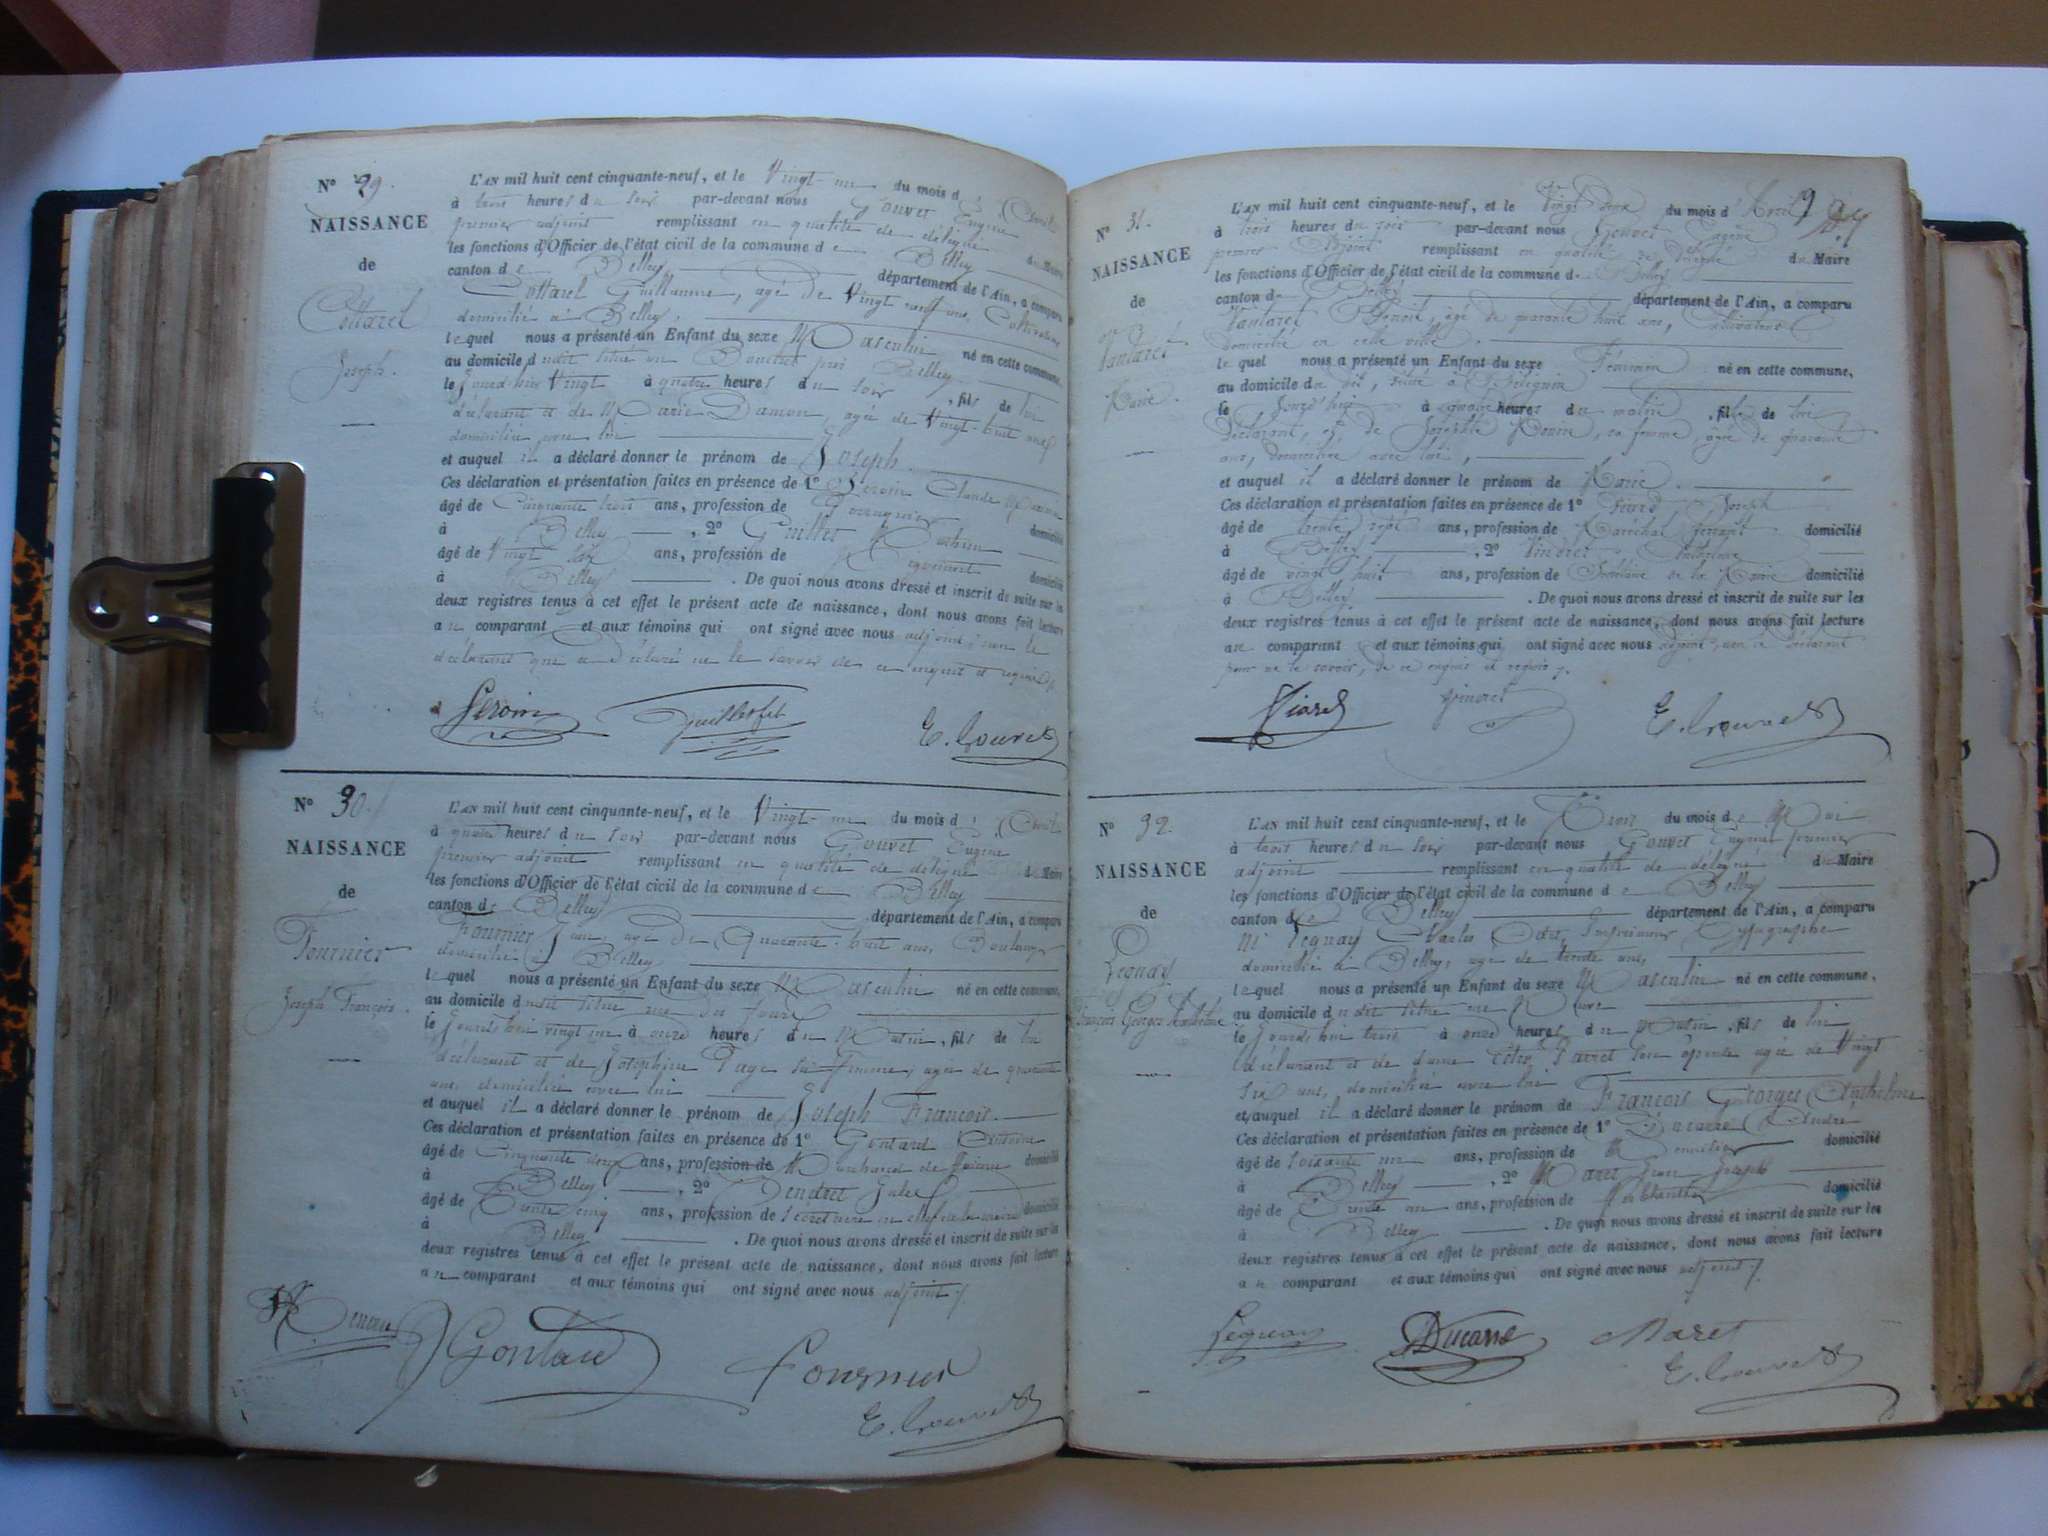 N° 29.
NAISSANCE
de
Cottarel
Joseph.
L'AN mil huit cent cinquante-neuf, et le Vingt-un du mois d'Avril
à trois heures du soir par-devant nous Gouvet Eugène
premier adjoint remplissant en qualité de délégué du Maire
les fonctions d'Officier de l'état civil de la commune de Belley
canton de Belley département de l'Ain, a comparu
Cottarel Guillaume, agé de Vingt neuf ans, Cultivateur
domicilié à Belley,
lequel nous a présenté un Enfant du sexe Masculin né en cette commune,
au domicile dudit situé au près Belley.
le Jourd'hier Vingt à quatre heures du soir, fils de lui
déclarant et de Marie Damon, agée de Vingt-huit ans
domiciliée avec lui
et auquel il a déclaré donner le prénom de Joseph.
Ces déclaration et présentation faites en présence de 1° Peroin Claude
âgé de Cinquante trois ans, profession de domicilié
à Belley, 2° Guillet
âgé de Vingt six ans, profession de domicilié
à Belley. De quoi nous avons dressé et inscrit de suite sur les
deux registres tenus à cet effet le présent acte de naissance, dont nous avons fait lecture
au comparant et aux témoins qui ont signé avec nous adjoint, non le
déclarant que a déclaré ne le savoir de ce enquis et requis
Peroin E. Gouvet
N° 30.
NAISSANCE
de
Fournier
Joseph François.
L'AN mil huit cent cinquante-neuf, et le Vingt-un du mois d'Avril
à quatre heures du soir par-devant nous Gouvet Eugène
premier adjoint remplissant en qualité de délégué du Maire
les fonctions d'Officier de l'état civil de la commune de Belley
canton de Belley département de l'Ain, a comparu
Fournier Jean, agé de Quarante-huit ans, Boulanger
domicilié à Belley
lequel nous a présenté un Enfant du sexe Masculin né en cette commune,
au domicile dudit situé rue du four
le Jourd'hui vingt un à onze heures du Matin, fils de lui
déclarant et de Joséphine Page sa femme, agée de quarante
ans, domiciliée avec lui
et auquel il a déclaré donner le prénom de Joseph François.
Ces déclaration et présentation faites en présence de 1° Gontard Antoine
âgé de Cinquante deux ans, profession de Marchand de domicilié
à Belley, 2°
âgé de Trente cinq ans, profession de Secrétaire en chef de la mairie domicilié
à Belley. De quoi nous avons dressé et inscrit de suite sur les
deux registres tenus à cet effet le présent acte de naissance, dont nous avons fait lecture
au comparant et aux témoins qui ont signé avec nous adjoint
Gontard Fournier
E. Gouvet
N° 31.
NAISSANCE
de
Vantaret
Marie.
L'AN mil huit cent cinquante-neuf, et le Vingt Deux du mois d'Avril
à trois heures du soir par-devant nous Gouvet Eugène
premier Adjoint remplissant en qualité de Délégué du Maire
les fonctions d'Officier de l'état civil de la commune de Belley
canton de Belley département de l'Ain, a comparu
Vantaret Benoit, âgé de quarante huit ans, Cultivateur
domicilié en cette ville.
lequel nous a présenté un Enfant du sexe Féminin né en cette commune,
au domicile du dit, situé à
le Jourd'hui à quatre heures du matin, fille de lui
déclarant, et de Josephte, sa femme, agée de quarante
ans, domiciliée avec lui,
et auquel il a déclaré donner le prénom de Marie.
Ces déclaration et présentation faites en présence de 1° Joseph
âgé de trente sept ans, profession de Maréchal ferrant domicilié
à Belley, 2° Vincret
âgé de vingt huit ans, profession de Secrétaire de la Mairie domicilié
à Belley. De quoi nous avons dressé et inscrit de suite sur les
deux registres tenus à cet effet le présent acte de naissance, dont nous avons fait lecture
au comparant et aux témoins qui ont signé avec nous adjoint, non le déclarant
pour ne le savoir, de ce enquis et requis
E. Gouvet
N° 32.
NAISSANCE
de
Peguay
François Georges Anthelme
L'AN mil huit cent cinquante-neuf, et le Trois du mois de Mai
à trois heures du soir par-devant nous Gouvet Eugène premier
adjoint remplissant en qualité de délégué du Maire
les fonctions d'Officier de l'état civil de la commune de Belley
canton de Belley département de l'Ain, a comparu
Mr Peguay Charles Imprimeur Typographe
domicilié à Belley, agé de trente ans,
lequel nous a présenté un Enfant du sexe Masculin né en cette commune,
au domicile dudit situé
le Jourd'hui trois à onze heures du matin, fils de lui
déclarant et de dame Parret son épouse agée de Vingt
six ans, domiciliée avec lui
et auquel il a déclaré donner le prénom de François Georges Anthelme
Ces déclaration et présentation faites en présence de 1° Ducarre André
âgé de soixante un ans, profession de domicilié
à Belley, 2° Maret Jean Joseph
âgé de Trente un ans, profession de Ferblantier domicilié
à Belley. De quoi nous avons dressé et inscrit de suite sur les
deux registres tenus à cet effet le présent acte de naissance, dont nous avons fait lecture
au comparant et aux témoins qui ont signé avec nous adjoint
Peguay Ducarre Maret
E. Gouvet